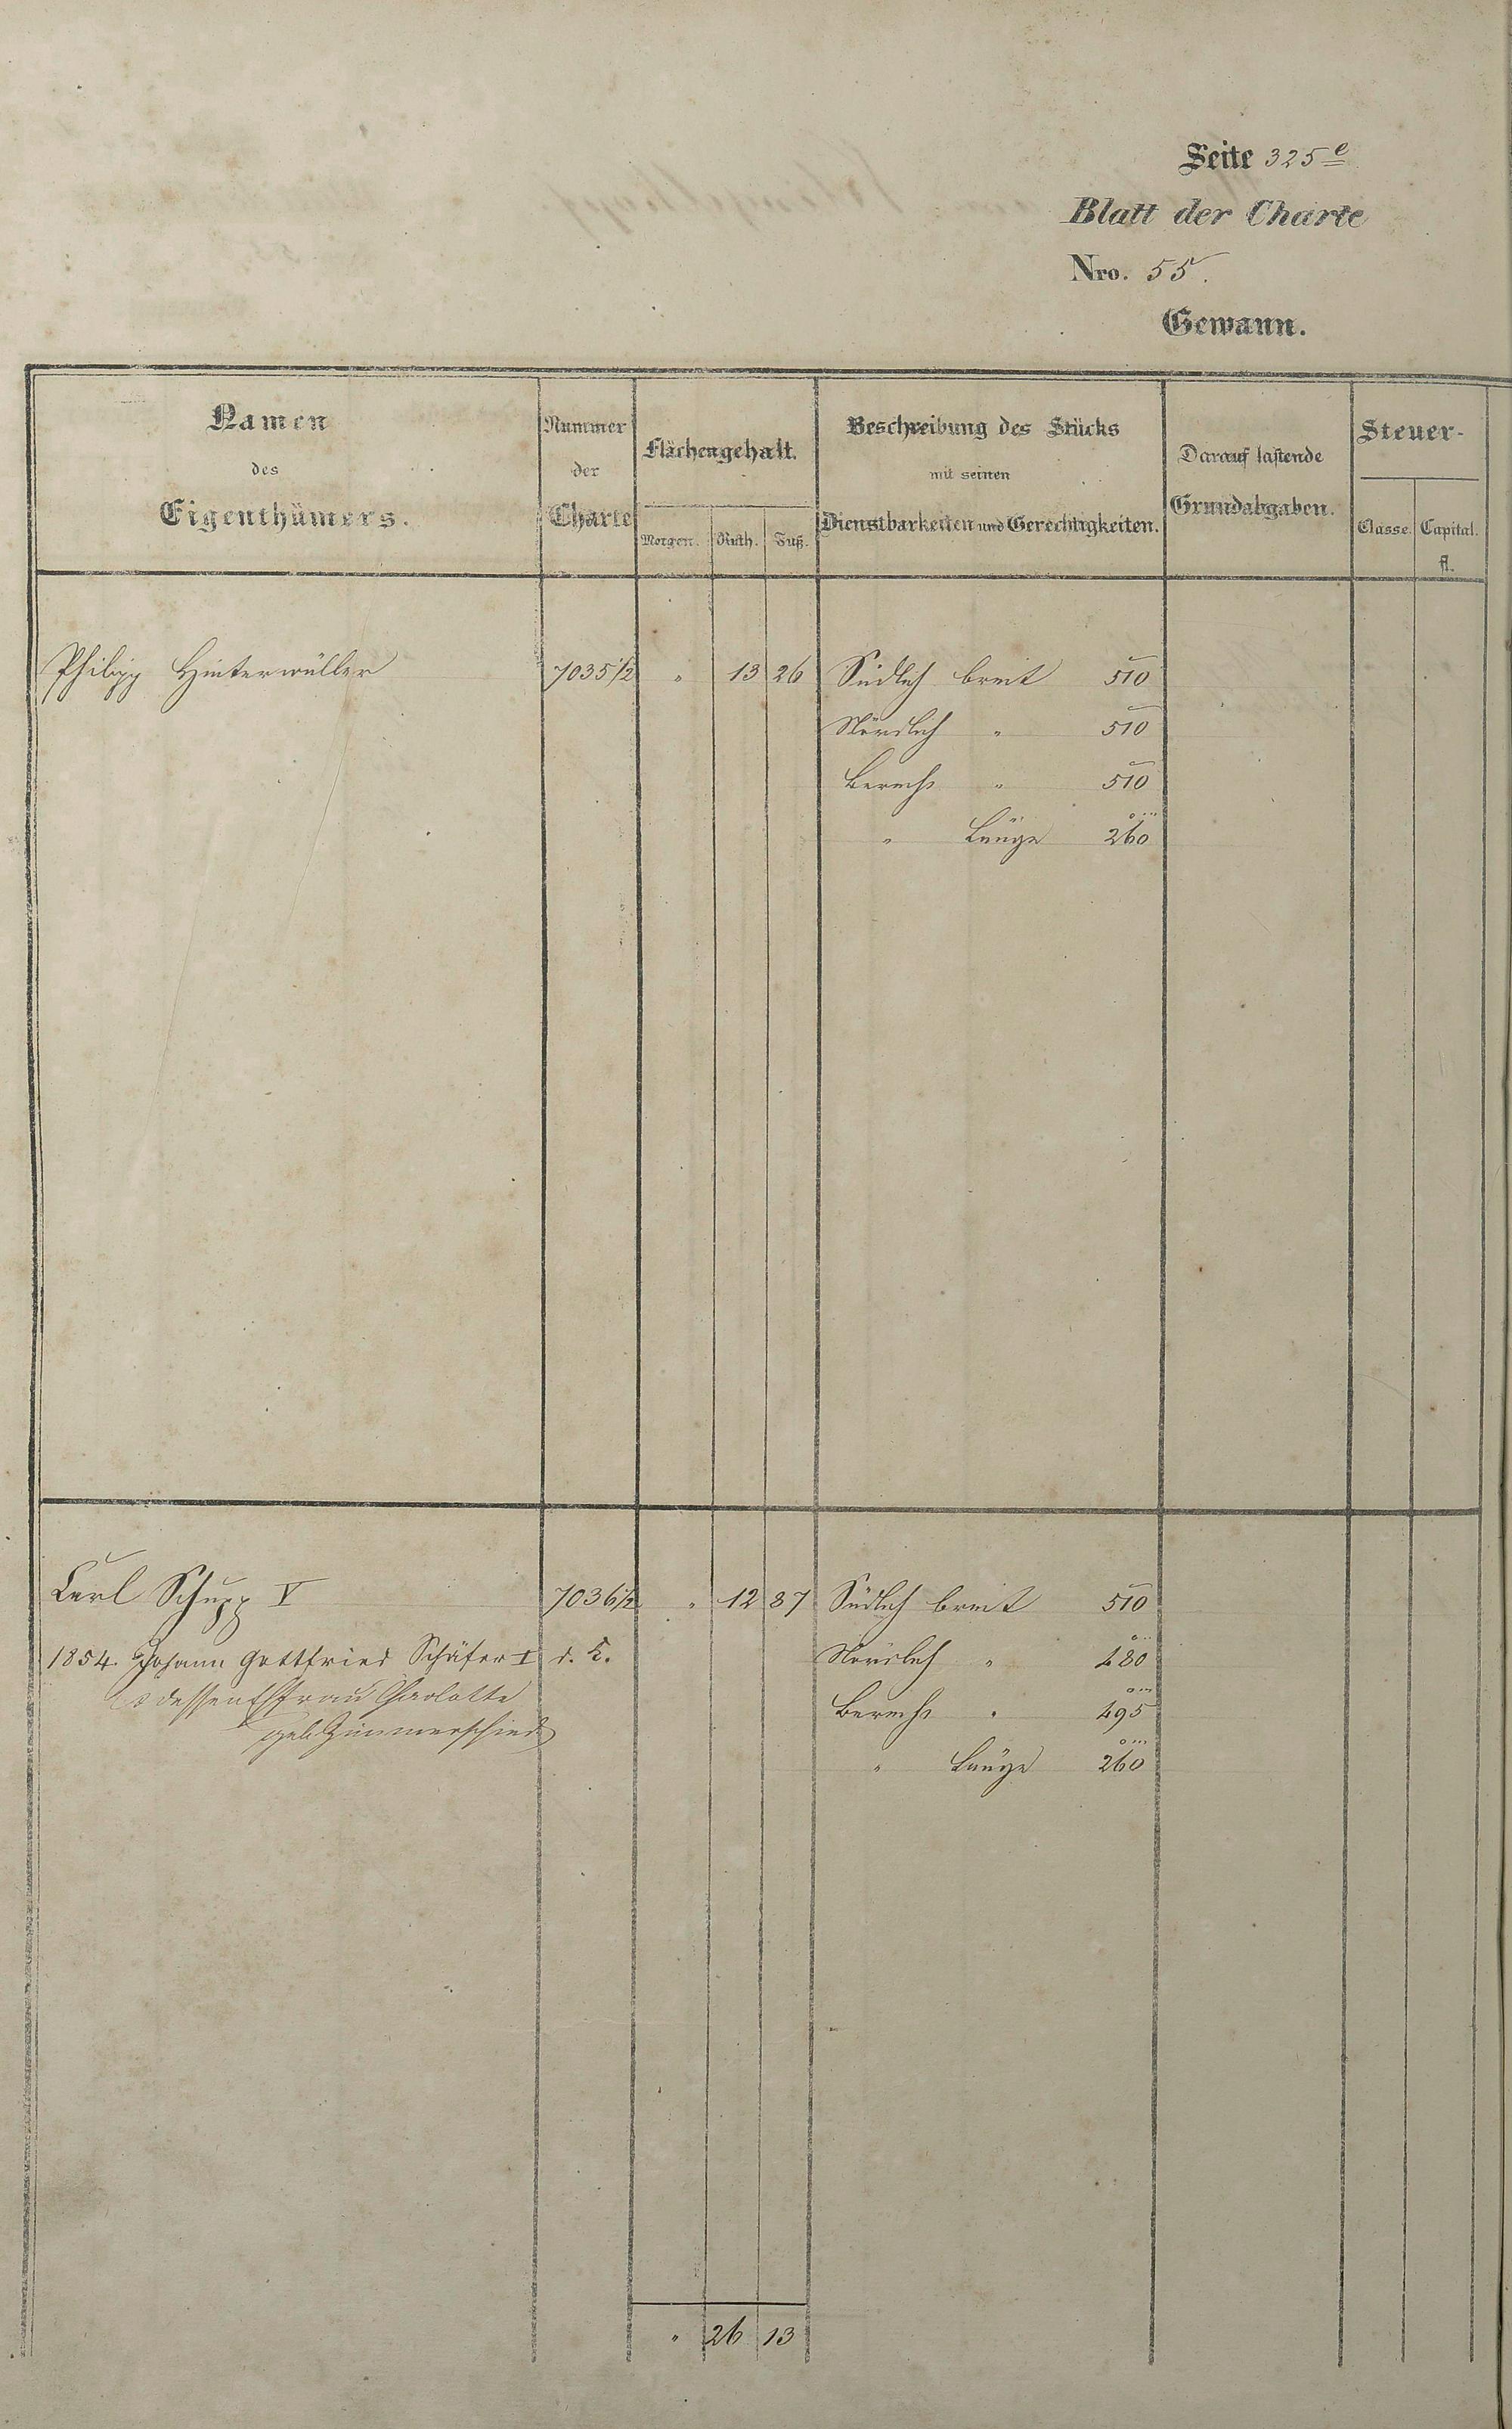 Seite 325e
Blatt der Charte
Nro. 55.
Gewann.
Namen des Eigenthümers.
Nummer der Charte
Flächengehalt.
Morgen. Ruth. Fuß.
Beschreibung des Stücks mit seinen Dienstbarkeiten und Gerechtigkeiten.
Darauf lastende Grundabgaben.
Steuer-
Classe. Capital.
fl.
Philipp Hinterwüller 7035 1/2 " 13 26 Südlich breit 510
Nördlich " 510
Berechn " 510
" Länge 260
Carl Schupp V 7036 1/2 " 12 87 Südlich breit 510
1854. Johann Gottfried Schäfer I d. K. Nördlich " 480
dessen Efrau Charlotte Berechn " 495
geb. Zimmerschied " Länge 260
" 26 13